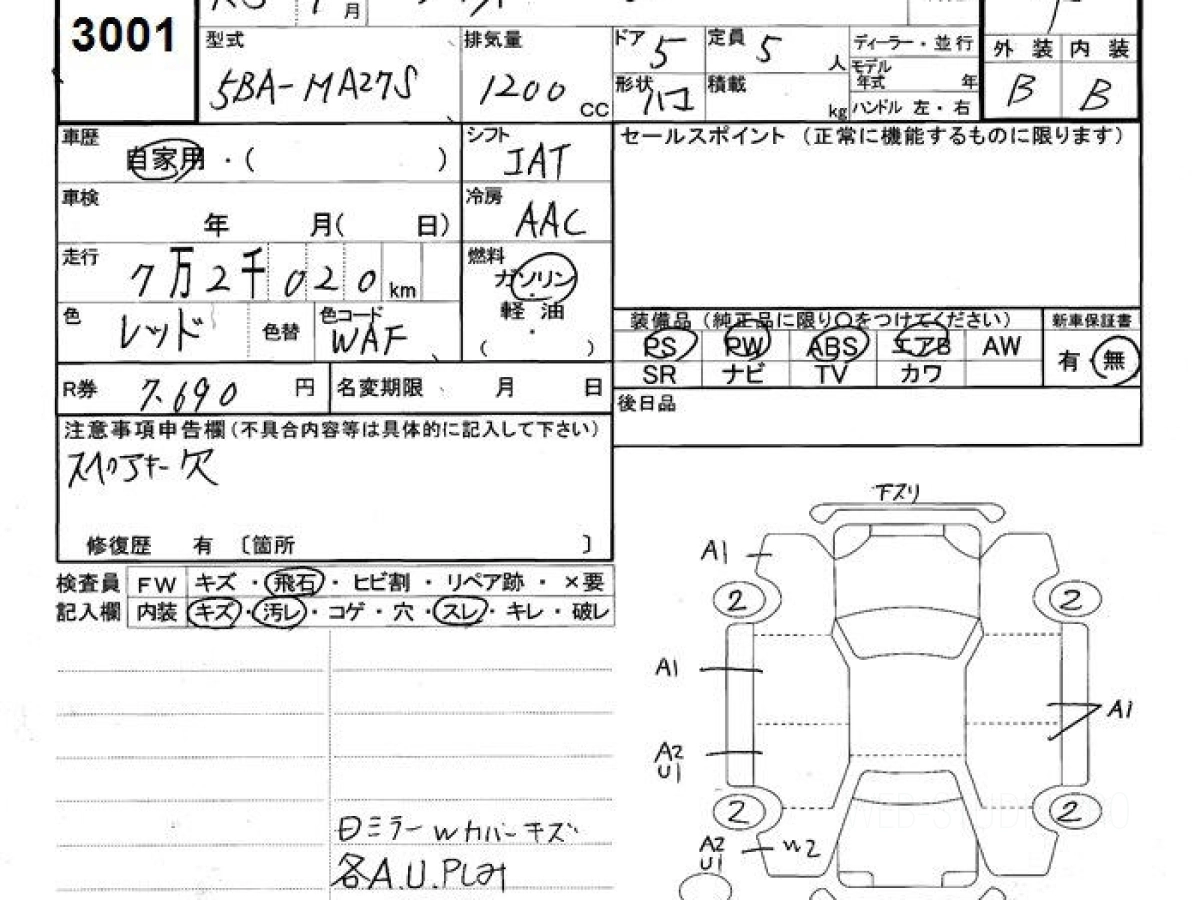 3001
月
型式
5BA-MA27S
排気量
1200 CC
ドア 5
定員 5 人
形状 ハコ
積載 kg
ディーラー・並行
モデル年式 年
ハンドル 左・右
外装 内装
B B
車歴
自家用・( )
シフト
IAT
セールスポイント (正常に機能するものに限ります)
車検
年 月( 日)
冷房
AAC
走行
7万2千020 km
燃料
ガソリン
軽油
・
( )
色
レッド
色替
色コード
WAF
装備品 (純正品に限り〇をつけてください)
新車保証書
PS PW ABS エアB AW
有・無
SR ナビ TV カワ
R券 7.690 円
名変期限 月 日
後日品
注意事項申告欄(不具合内容等は具体的に記入して下さい)
スペアキー欠
修復歴 有 〔箇所 〕
検査員
記入欄
FW キズ・飛石・ヒビ割・リペア跡・×要
内装 キズ・汚レ・コゲ・穴・スレ・キレ・破レ
下スリ
A1
2
2
A1
A1
A2
U1
2
2
A2
U1
W2
日ミラーWカバーキズ
各A.U.P